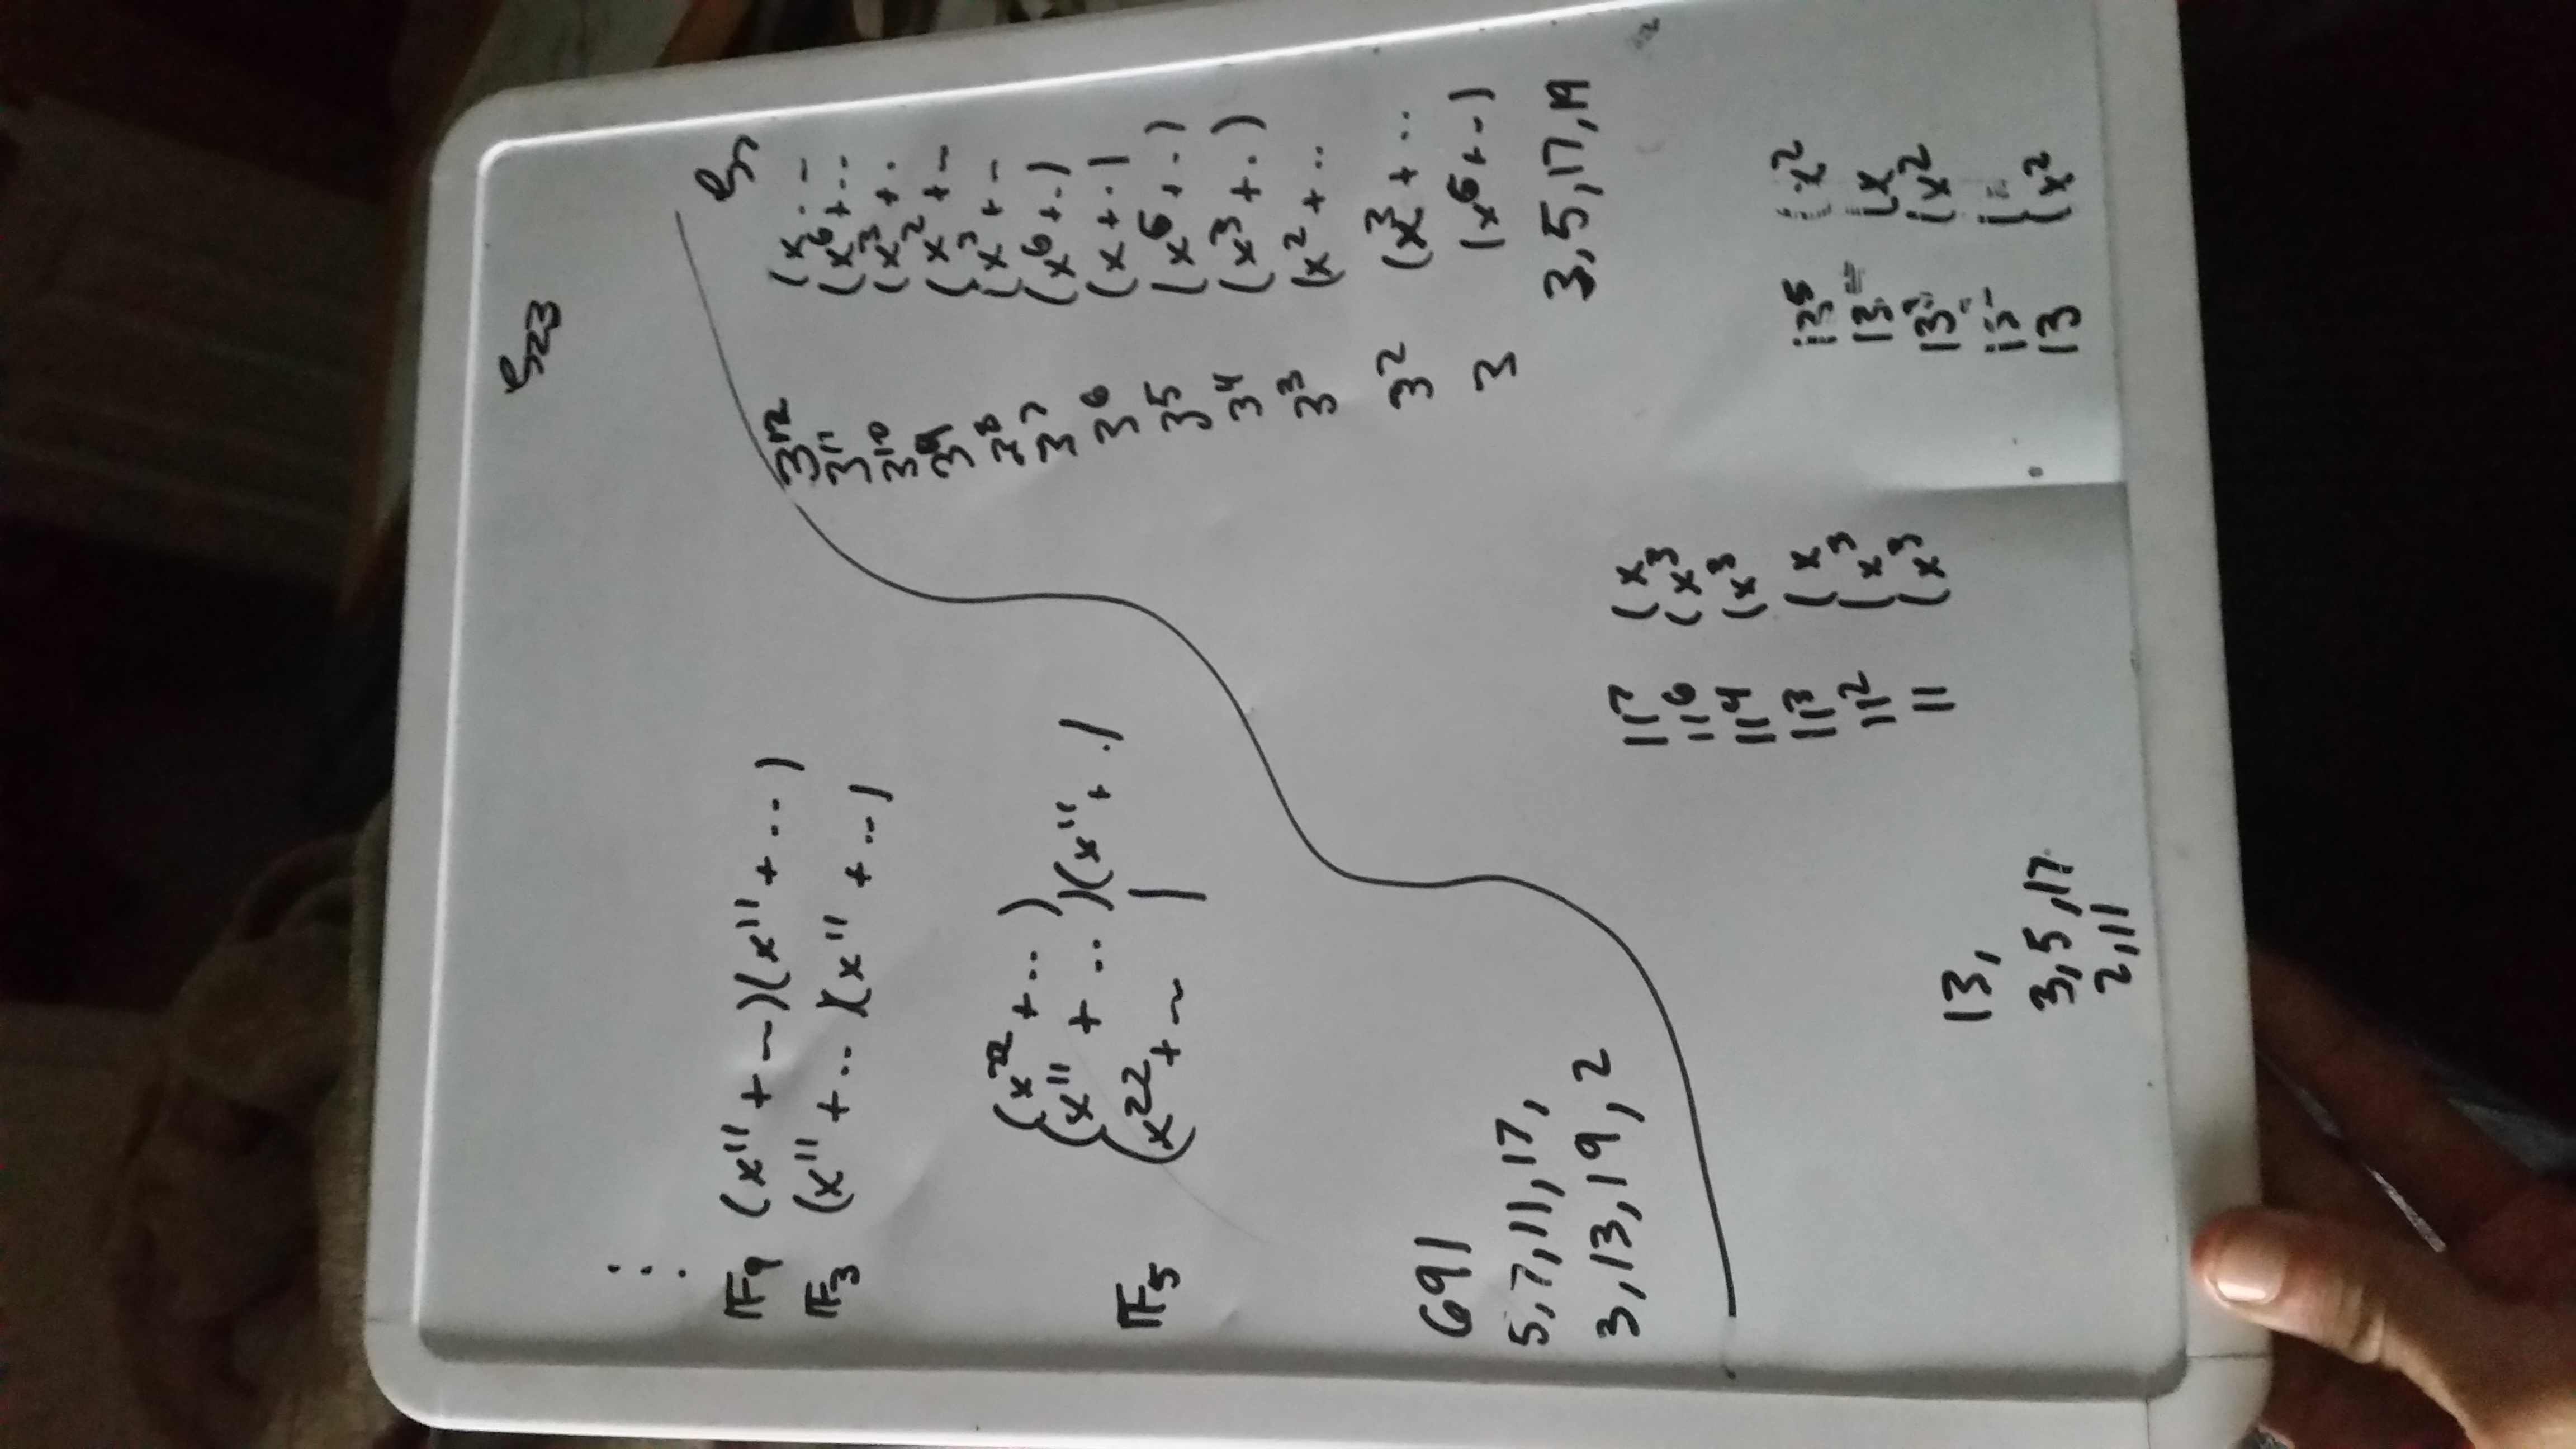 ζ23
⋮
𝔽9 (x^11 + ~)(x^11 + ..)
𝔽3 (x^11 + .. )(x^11 + ..)
(x^22 + .. )
(x^11 + .. )(x^11 + .)
𝔽5 (x^22 + ~ )
691
5,7,11,17,
3,13,19,2
ζ7
3^12 (x . –
3^11 (x^6 + ..
3^10 (x^3 + .
3^9 (x^2 + ~
3^8 (x^3 + –
3^7 (x^6 + .)
3^6 (x + . )
3^5 (x^6 + . )
3^4 (x^3 + . )
3^3 (x^2 + ..
3^2 (x^3 + ..
3 (x^6 + – )
3,5,17,19
11^7 (x
11^6 (x^3
11^4 (x^3
11^3 (x
11^2 (x^3
11 (x^3
13^5 (x^2
13 (x
13^3 (x^2
13 (x^2
13,
3,5,17
2,11